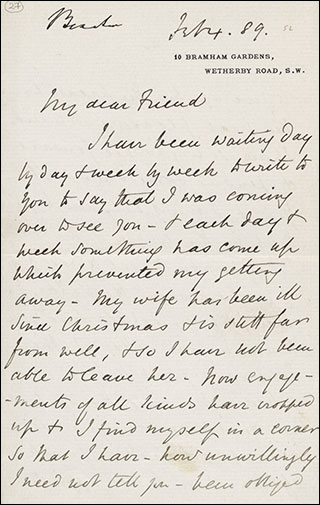 27
Feb 4. 89.
10 BRAMHAM GARDENS,
WETHERBY ROAD, S.W.
My dear Friend
I have been waiting day
by day & week by week to write to
you to say that I was coming
over to see you - & each day &
week something has come up
which prevented my getting
away - My wife has been ill
since Christmas & is still far
from well, & so I have not been
able to leave her - Now engage-
-ments of all kinds have cropped
up & I find myself in a corner
so that I have - how unwillingly
I need not tell you - been obliged